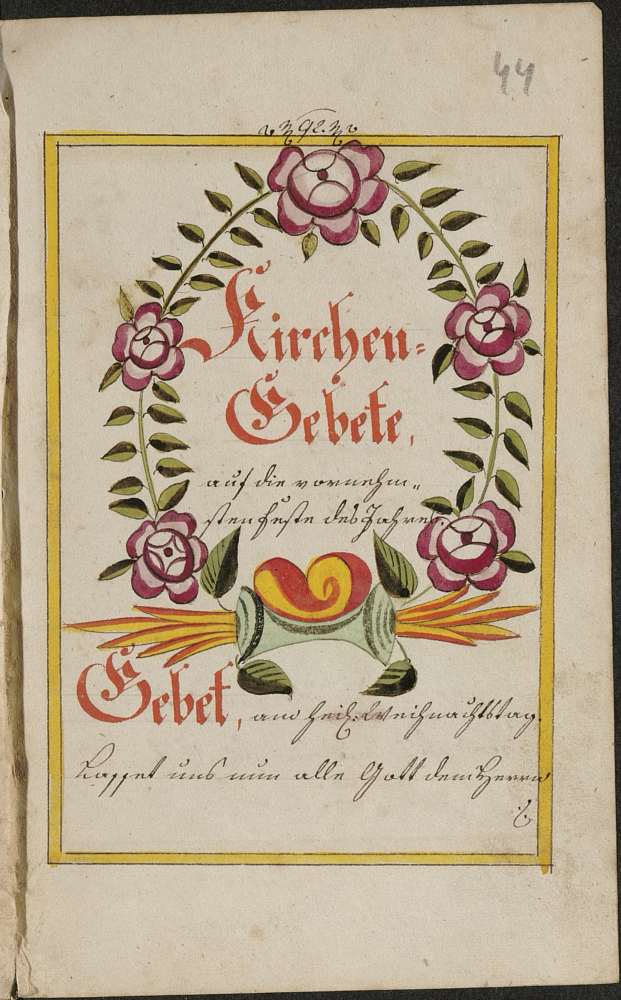 44
92.
Kirchen-
Gebete,
auf die vornehm-
sten Feste des Jahres.
Gebet, am heil: Weihnachtstag.
Lasset uns nun alle Gott dem Herrn